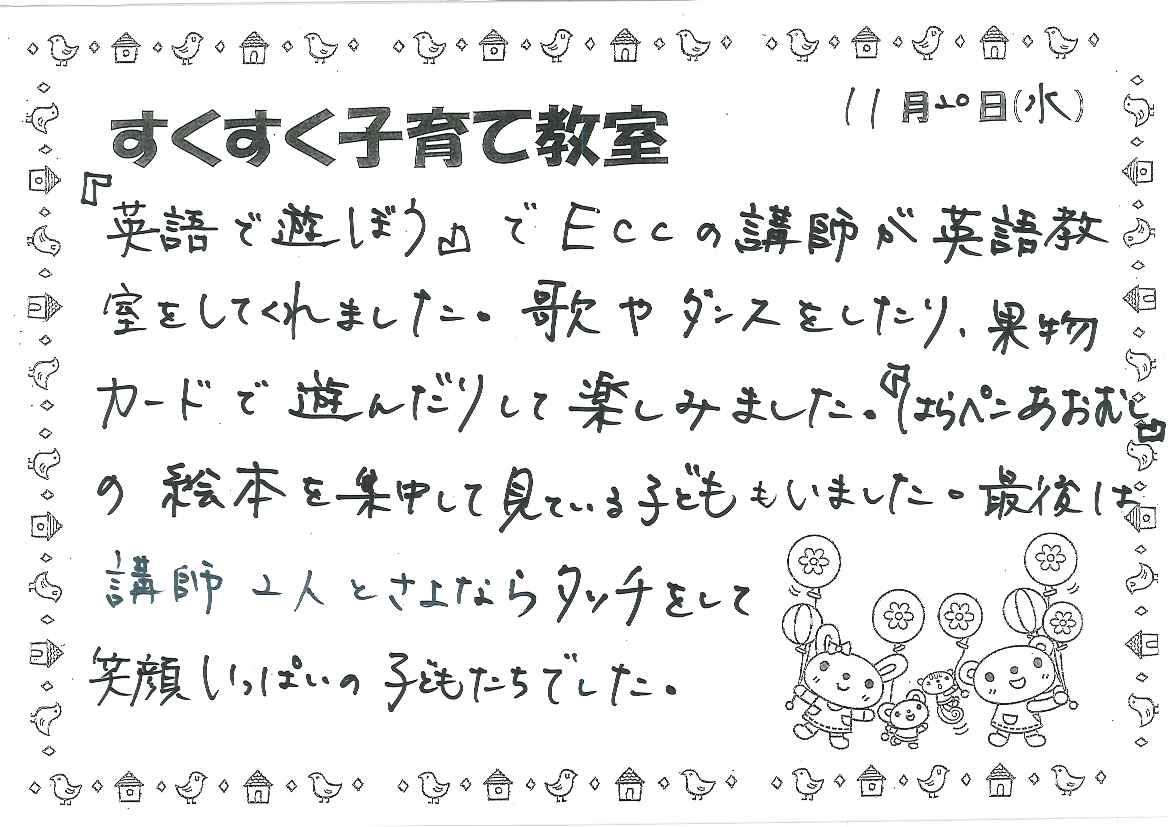 すくすく子育て教室
11月20日(水)
『英語で遊ぼう』でEccの講師が英語教
室をしてくれました。歌やダンスをしたり、果物
カードで遊んだりして楽しみました。『はらペこあおむし』
の絵本を集中して見ている子どももいました。最後は
講師2人とさよならタッチをして
笑顔いっぱいの子どもたちでした。